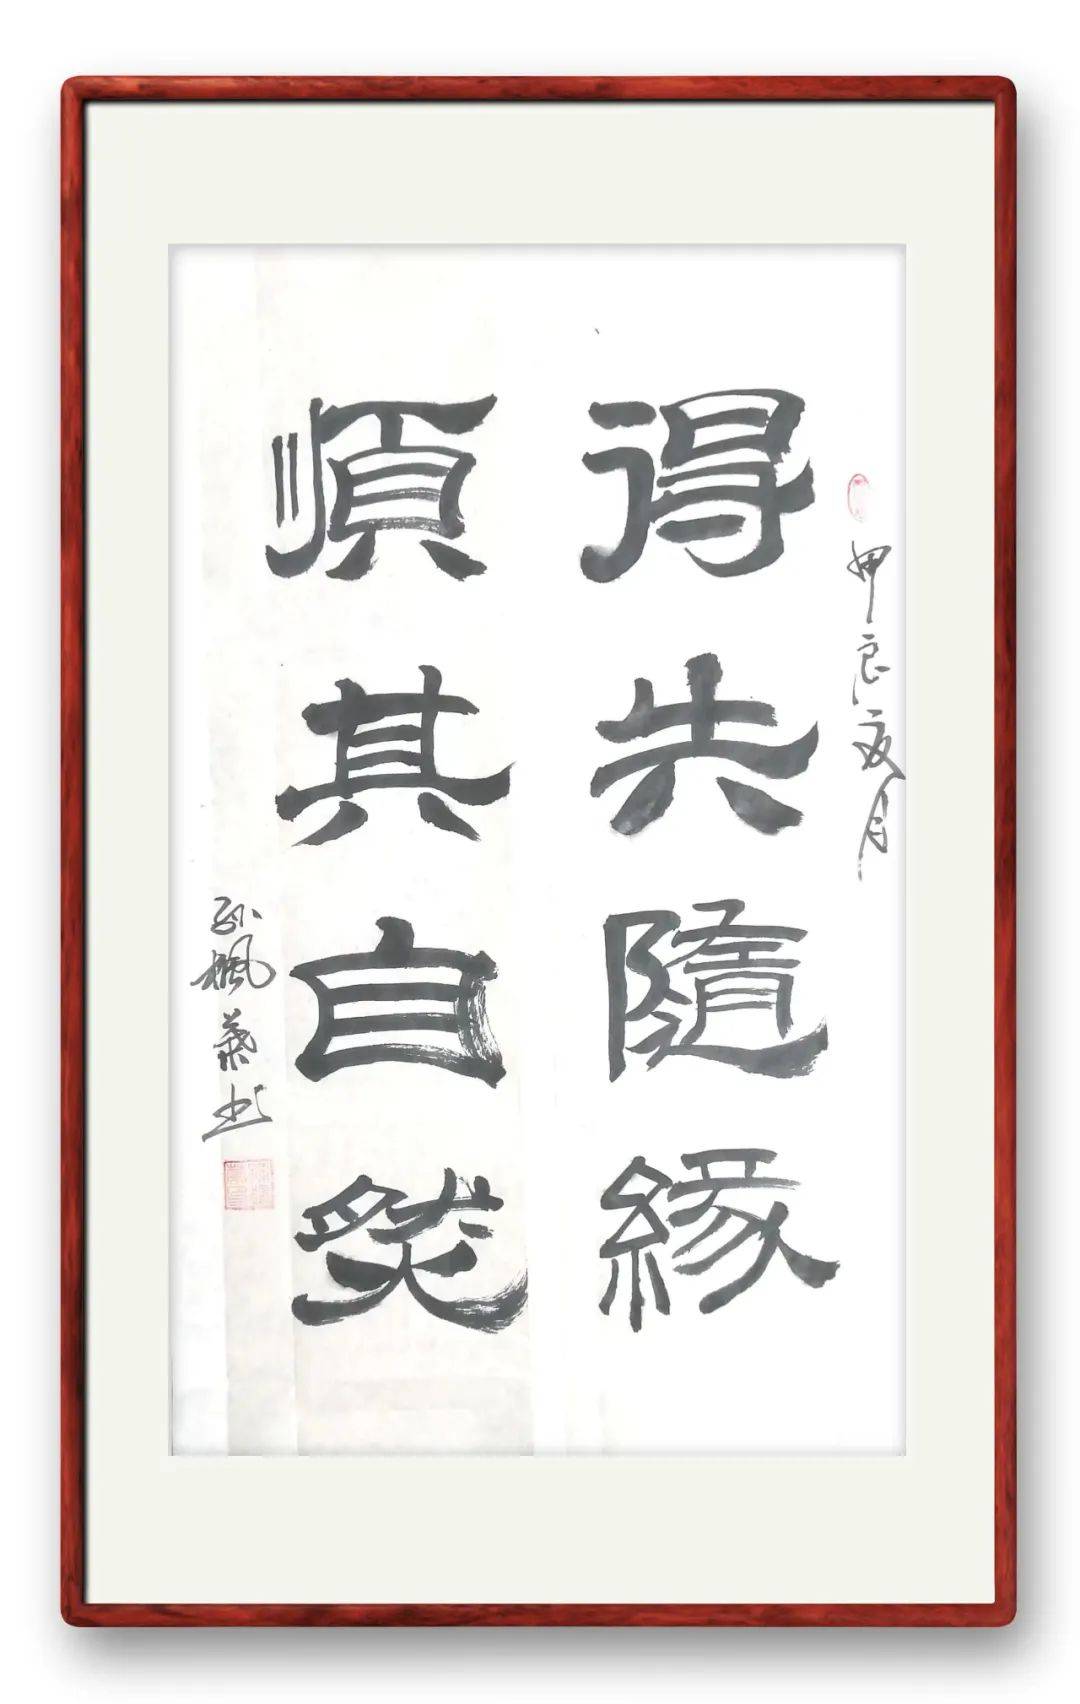 甲辰夏月
得失隨緣
順其自然
孙楓葉书